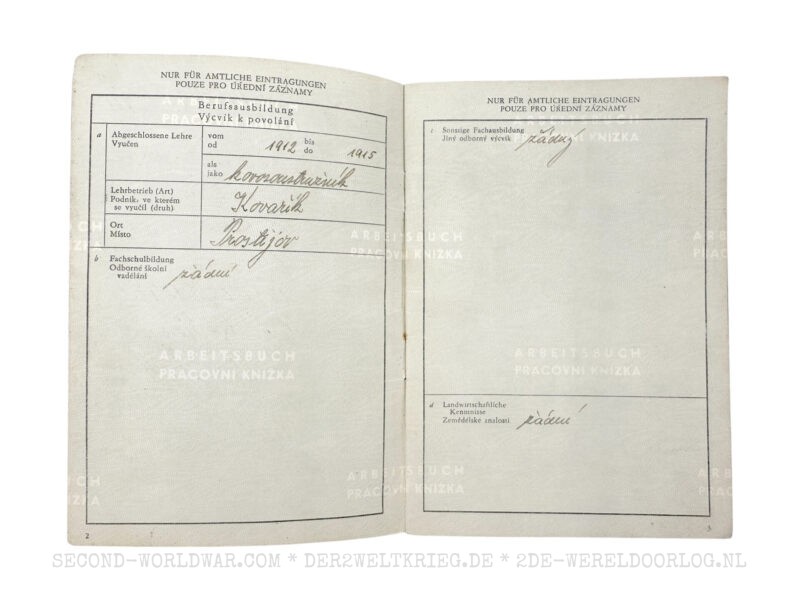 NUR FÜR AMTLICHE EINTRAGUNGEN
POUZE PRO ÚŘEDNÍ ZÁZNAMY
Berufsausbildung
Výcvik k povolání
a Abgeschlossene Lehre
Vyučen
vom
od 1912 bis
do 1915
als
jako kovosoustružník
Lehrbetrieb (Art)
Podnik, ve kterém
se vyučil (druh)
Kovařík
Ort
Místo
Prostějov
b Fachschulbildung
Odborné školní
vzdělání
žádné
ARBEITSBUCH
PRACOVNÍ KNÍŽKA
2
NUR FÜR AMTLICHE EINTRAGUNGEN
POUZE PRO ÚŘEDNÍ ZÁZNAMY
c Sonstige Fachausbildung
Jiný odborný výcvik žádný
ARBEITSBUCH
PRACOVNÍ KNÍŽKA
d Landwirtschaftliche
Kenntnisse
Zemědělské znalosti žádné
ARBEITSBUCH
PRACOVNÍ KNÍŽKA
3
SECOND-WORLDWAR.COM * DER2WELTKRIEG.DE * 2DE-WERELDOORLOG.NL